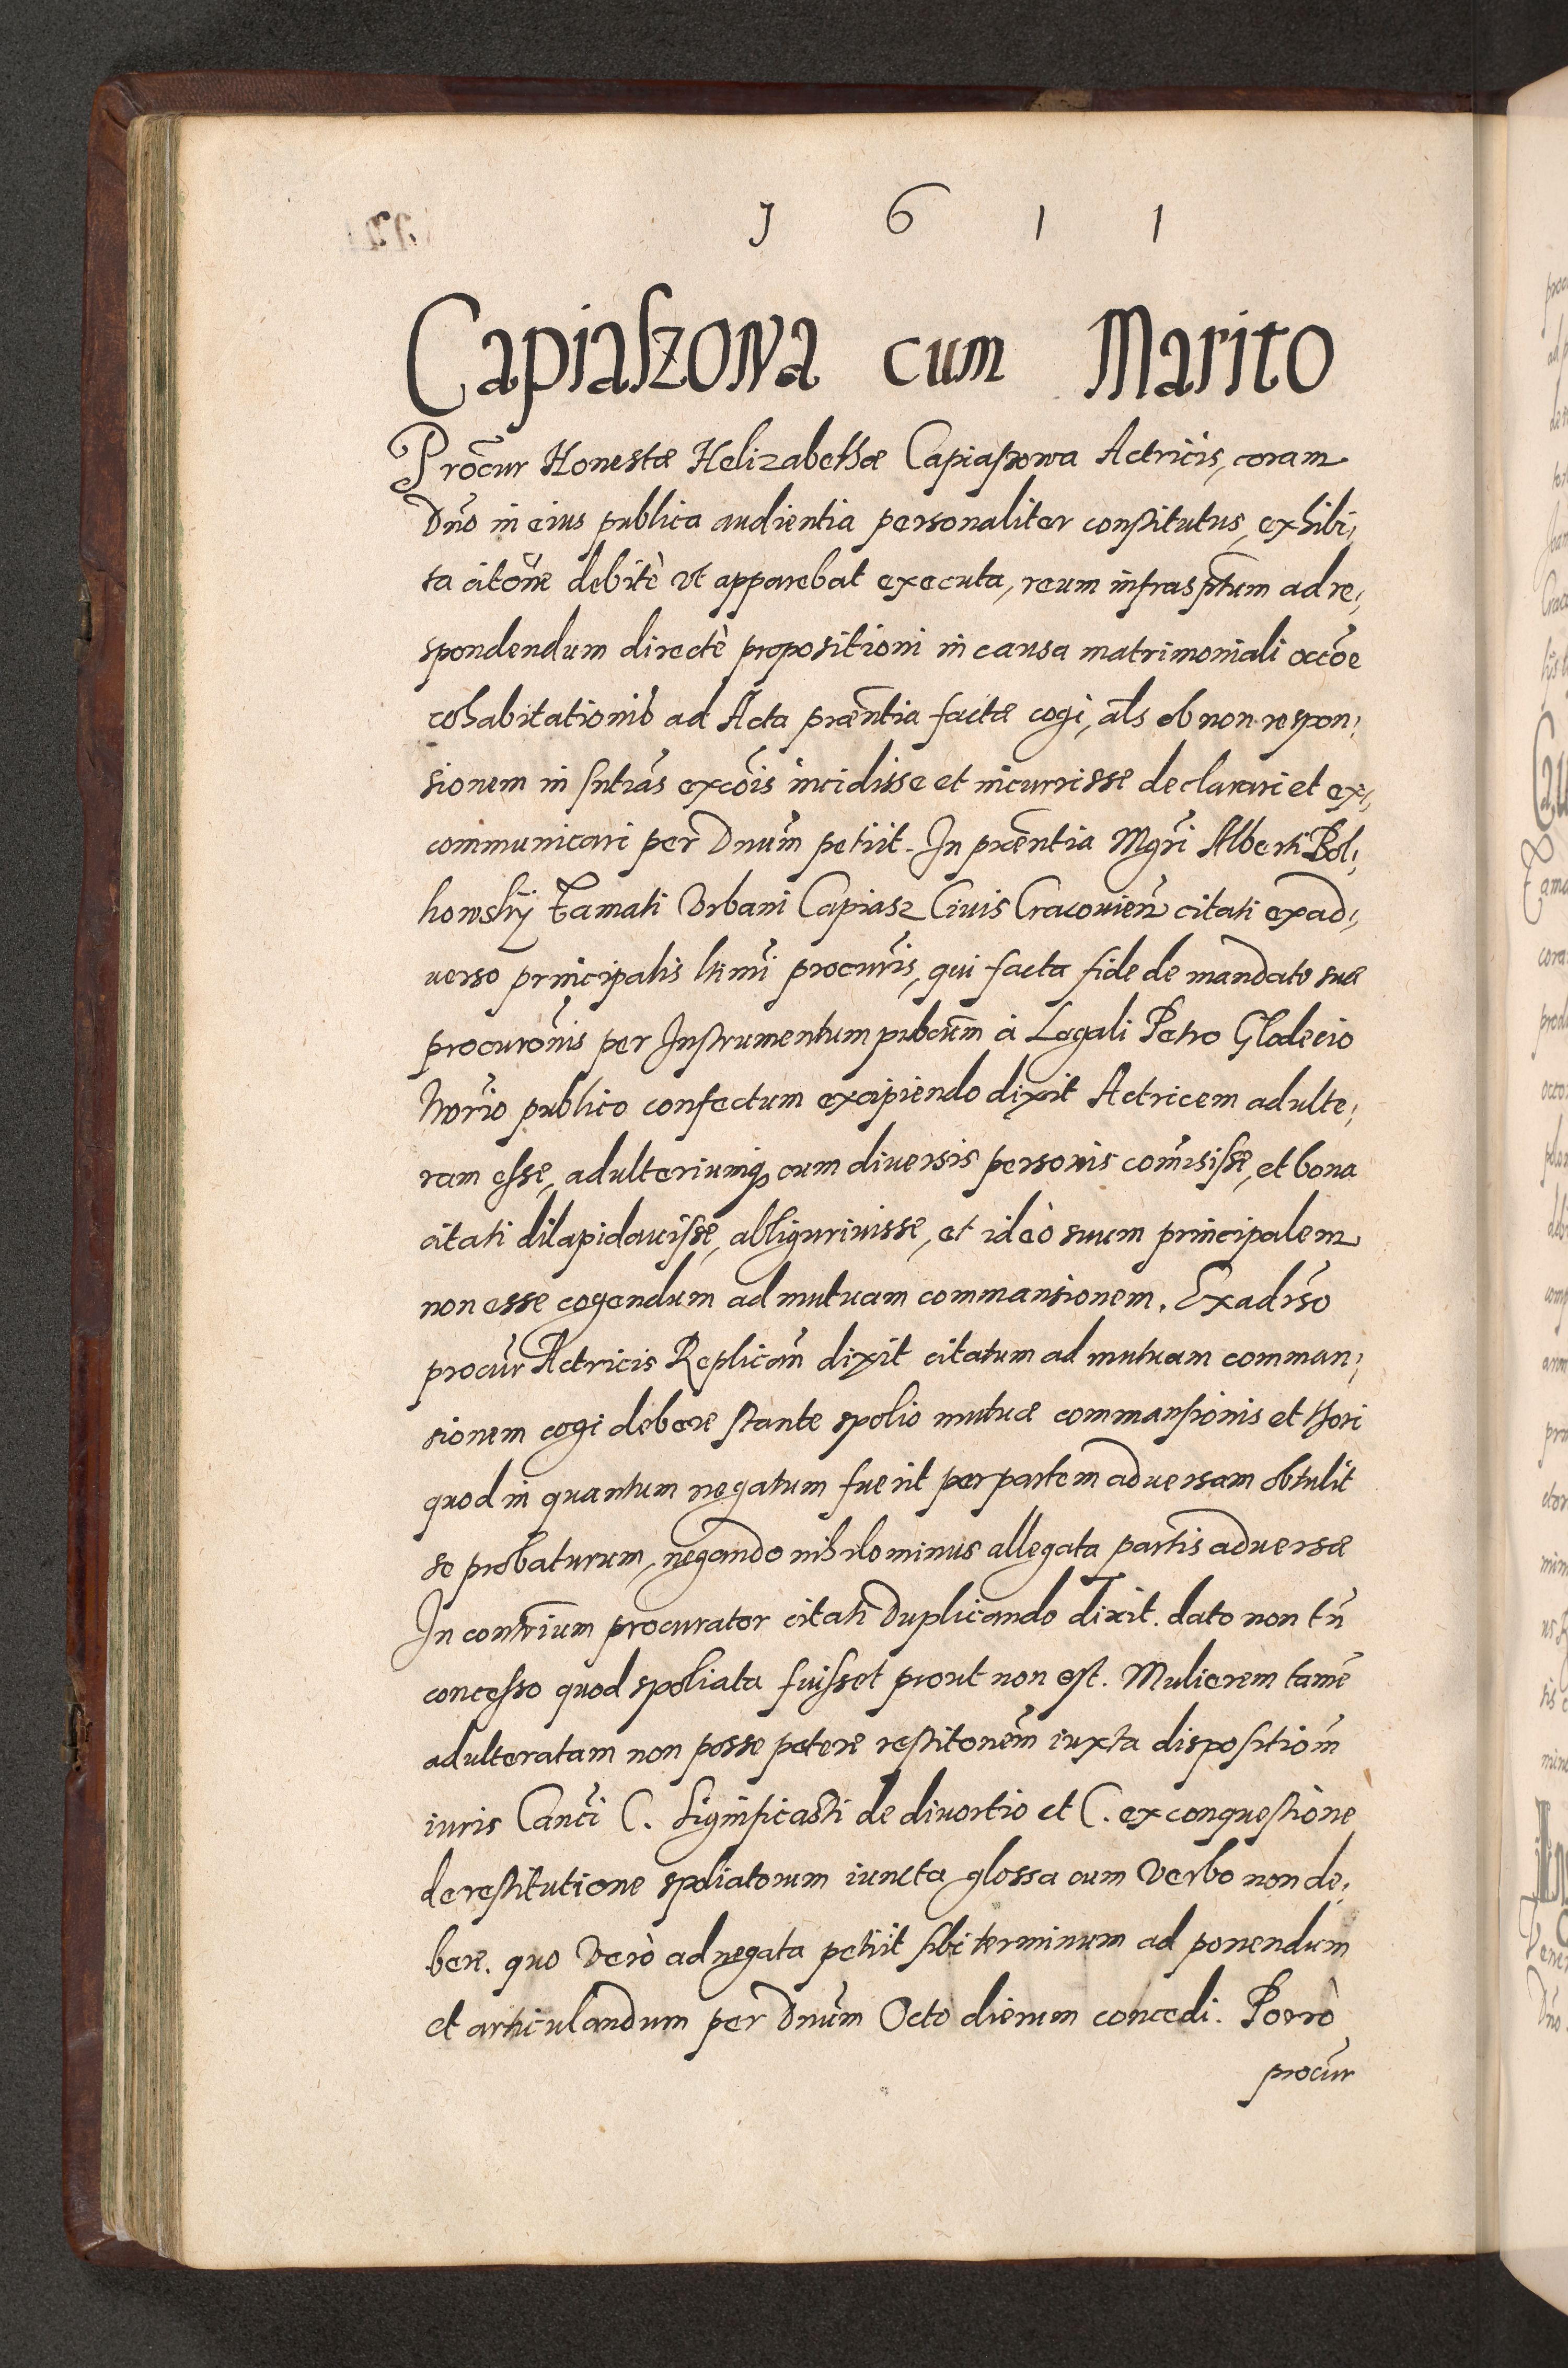 1 6 1 1
Capiaszowa cum Marito
Procur̃ Honestæ Helizabethæ Capiaszowa Actricis, coram
Dño in eius publica audientia personaliter constitutus, exhibi,
ta citõne debitè vt apparebat executa, reum infrascptum ad re,
spondendum directè propositioni in causa matrimoniali occõe
cohabitationis ad Acta præntia factæ cogi, als ob non respon,
sionem in sntias excõis incidisse et incurrisse declarari et ex,
communicari per Dnum petiit. In præntia Mgri Alberti Bol,
howskij Famati Vrbani Capiasz Ciuis Cracouien̄ citati exad,
uerso principalis ltimi procuris, qui facta fide de mandato suæ
procurõnis per Instrumentum pubcum à Legali Petro Glodecio
Norio publico confectum excipiendo dixit Actricem adulte,
ram esse, adulteriumq; cum diuersis personis com̃isisse, et bona
citati dilapidauisse, abligurivisse, et ideò suum principalem
non esse cogendum ad mutuam commansionem. Exadrso
procur̃ Actricis Replicañ dixit citatum ad mutuam comman,
sionem cogi debere stante spolio mutuæ commansionis et thori
quod in quantum negatum fuerit per partem aduersam obtulit
se probaturum, negando nihilominus allegata partis aduersæ
In contrium procurator citati Duplicando dixit. dato non tn̄
concesso quod spoliata fuisset prout non est. Mulierem tamē
adulteratam non posse petere restitonem iuxta dispositiom̃
iuris Canci C. Significasti de diuortio et C. ex conquestione
de restitutione spoliatorum iuncta glossa cum Verbo non de,
bere. quo Verò ad negata petiit sibi terminum ad ponendum
et articulandum per Dnum Octo dierum concedi. Porrò
procur̃